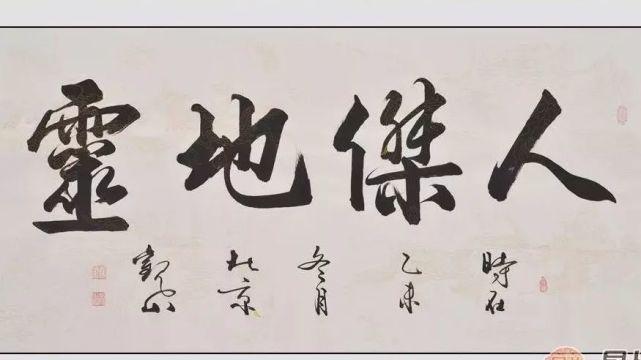 人傑地靈
時在
乙未
冬月
北京